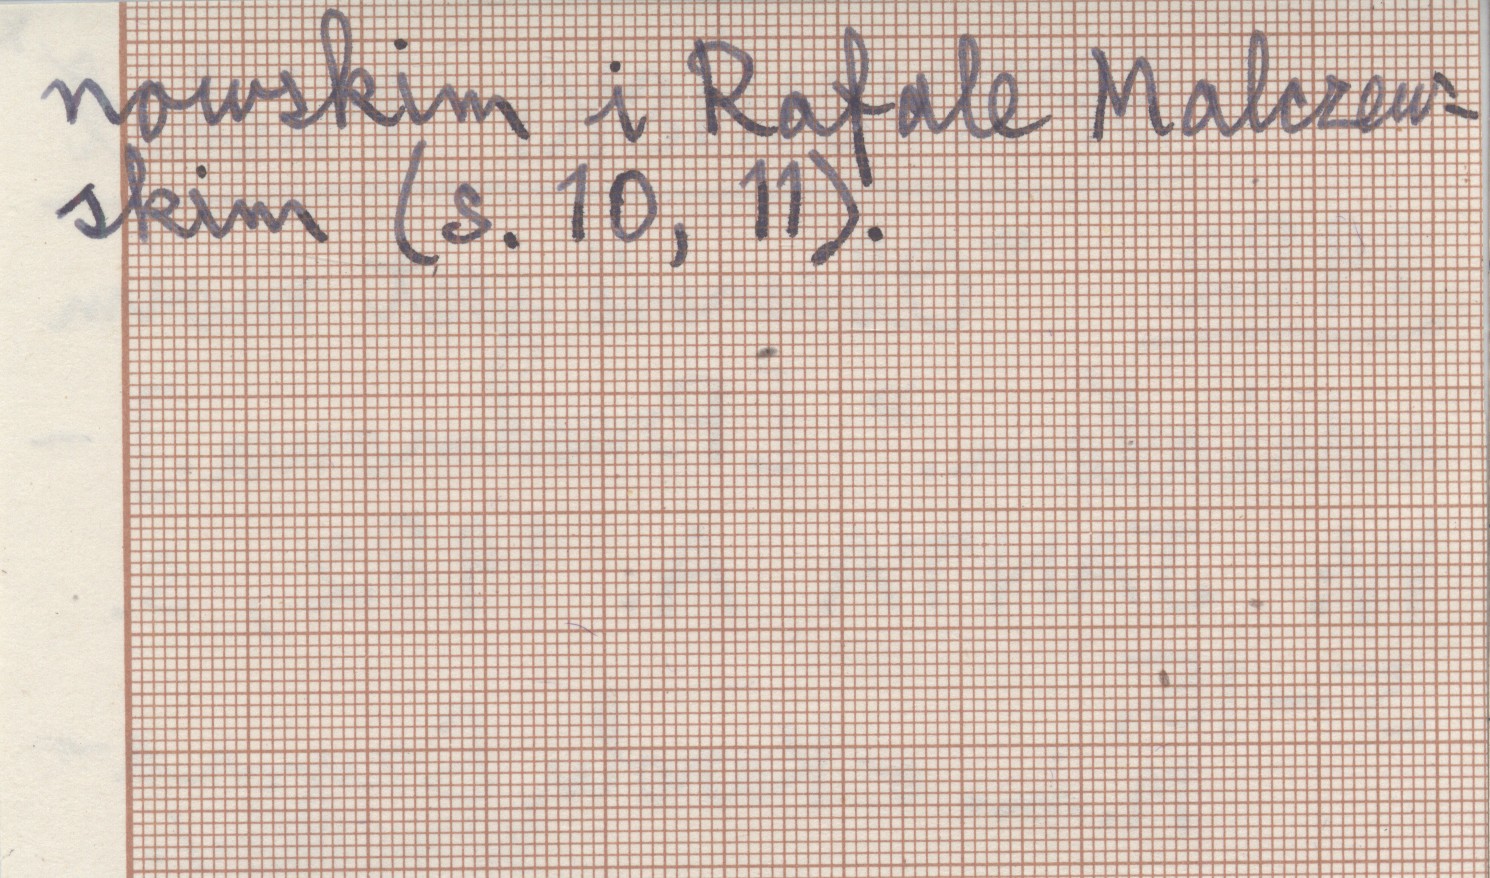 nowskim i Rafale Malczew-
skim (s. 10, 11).